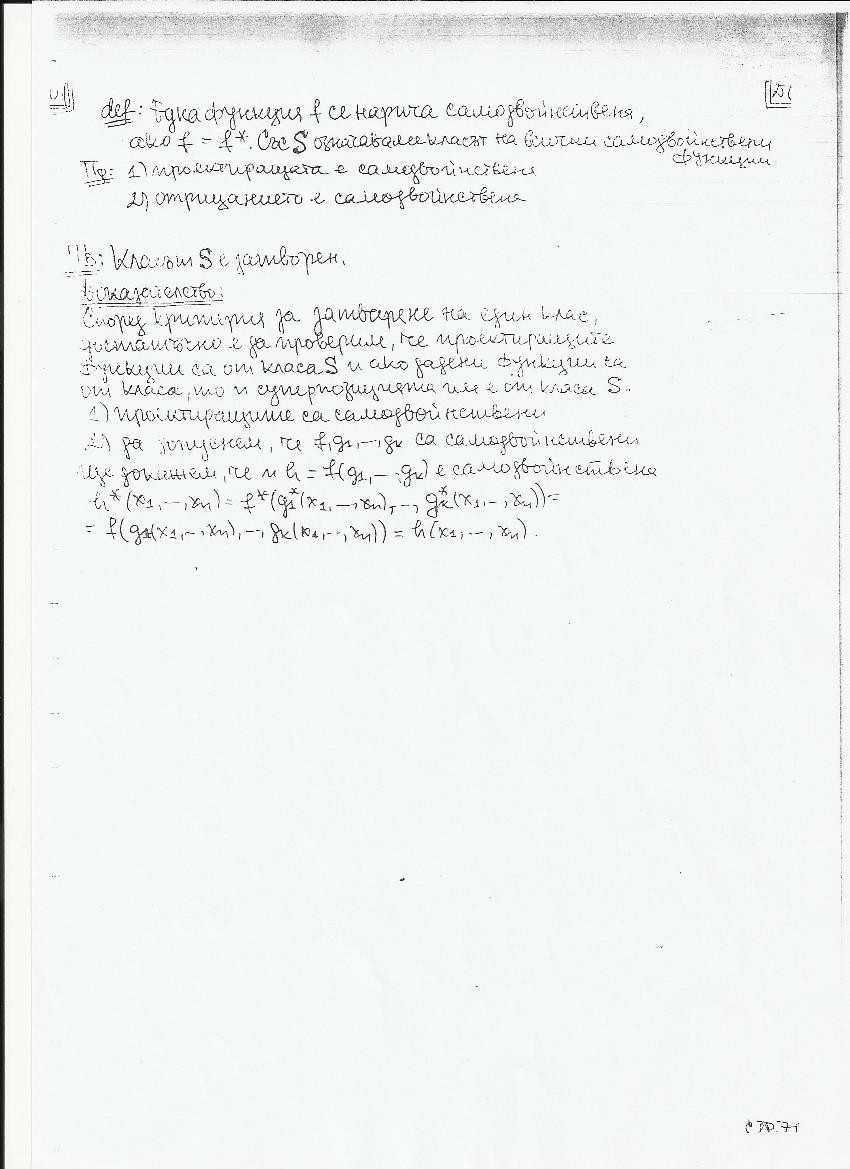 def: Една функция f се нарича самодвойнствена,
ако f = f*. Със S означаваме класът на всички самодвойнствени
функции.
Пр: 1) проектиращата е самодвойнствена
2) отрицанието е самодвойнствена
Тв: Класът S е затворен.
Доказателство:
Според критерия за затваряне на един клас,
достатъчно е да проверим, че проектиращите
функции са от класа S и ако дадени функции са
от класа, то и суперпозицията им е от класа S.
1) проектиращите са самодвойнствени
2) да допуснем, че f, g1,..., gk са самодвойнствени
Ще докажем, че и h = f(g1, –, gk) е самодвойнствена
h*(x1, –, xn) = f*(g1*(x1, –, xn), –, gk*(x1, –, xn)) =
= f(g1(x1, –, xn), –, gk(x1, –, xn)) = h(x1, –, xn).
стр. 71